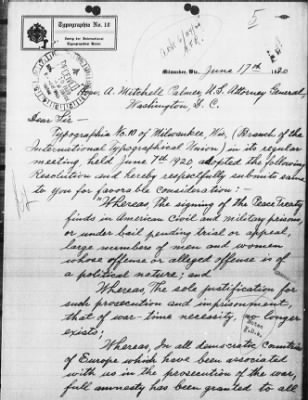 Typographia No. 10
Milwaukee, Wis. June 17th 1920
Hon. A. Mitchell Palmer, U.S. Attorney General,
Washington, D. C.
Dear Sir -
Typographia No. 10 of Milwaukee, Wis. (Branch of the
International Typographical Union) in its regular
meeting, held June 7th 1920, adopted the following
Resolution and hereby respectfully submits same
to you for favorable consideration: -
"Whereas, the signing of the Peace Treaty
finds in American Civil and military prisons,
or under bail pending trial or appeal,
large members of men and women
whose offense or alleged offense is of
a political nature; and
Whereas, The sole justification for
such prosecution and imprisonment,
that of war-time necessity, no longer
exists;
Whereas, In all democratic Countries
of Europe which have been associated
with us in the prosecution of the war,
full amnesty has been granted to all